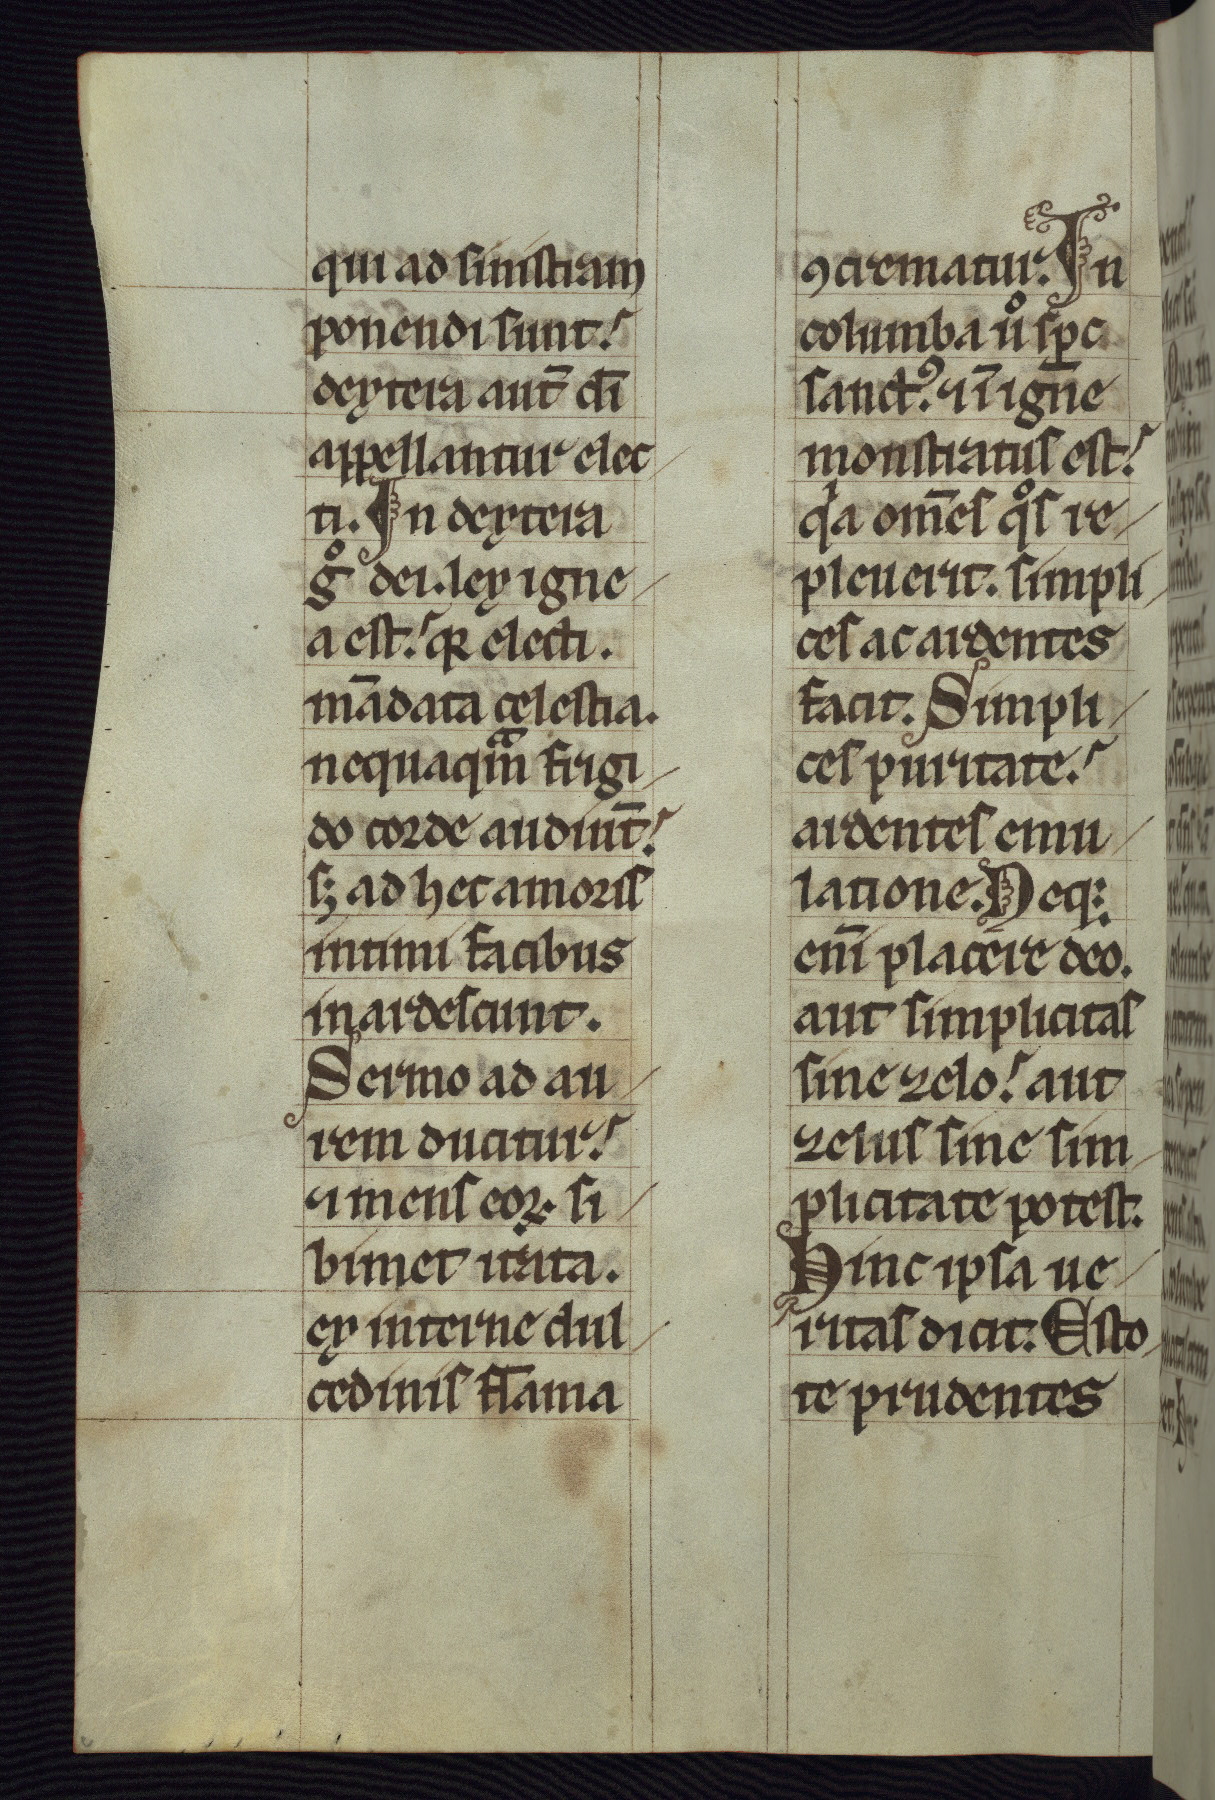 qui ad sinistram
ponendi sunt!
dextera aut̄ dī
appellantur elec
ti. In dextera
gͦ dei. lex igne
a est! qꝛ electi.
mādata cęlestia.
nequaqᷓm frigi
do corde audiunt̄!
sꝫ ad hec amoris
intimi facibus
inardescunt.
Sermo ad au
rem ducitur!
⁊ mens eoꝝ si
bimet irata.
ex interne dul
cedinis flāma
ꝯcrematur. In
columba uͦ sp̄c
sanctꝰ. ⁊ ī igne
monstratus est!
qͥa om̄es qͦs re
pleuerit. simpli
ces ac ardentes
facit. Simpli
ces puritate!
ardentes emu
latione. Neqꝫ
enī placere deo.
aut simplicitas
sine zelo! aut
zelus sine sim
plicitate potest.
Hinc ipsa ue
ritas dicit. Esto
te prudentes